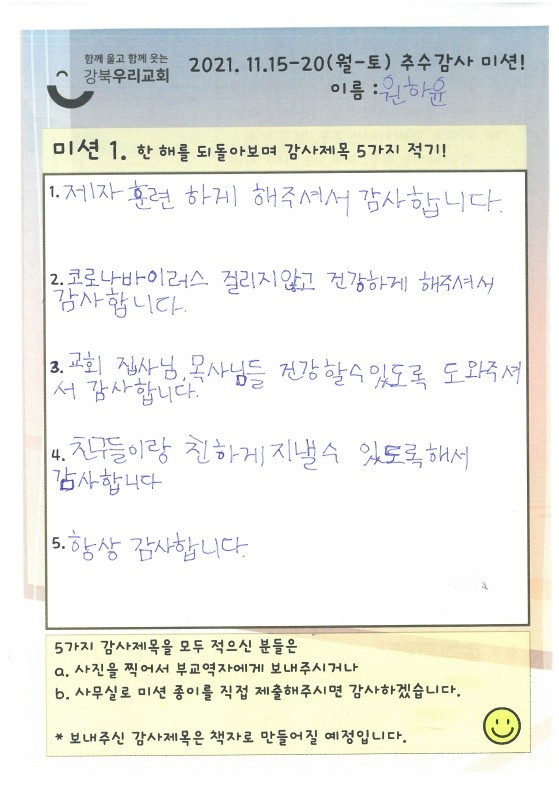 함께 울고 함께 웃는
강북우리교회
2021. 11.15-20(월-토) 추수감사 미션!
이름 : 원하윤
미션 1. 한 해를 되돌아보며 감사제목 5가지 적기!
1. 제자 훈련 하게 해주셔서 감사합니다.
2. 코로나바이러스 걸리지않고 건강하게 해주셔서
감사합니다.
3. 교회 집사님, 목사님들 건강할수있도록 도와주셔
서 감사합니다.
4. 친구들이랑 친하게 지낼수 있도록해서
감사합니다
5. 항상 감사합니다.
5가지 감사제목을 모두 적으신 분들은
a. 사진을 찍어서 부교역자에게 보내주시거나
b. 사무실로 미션 종이를 직접 제출해주시면 감사하겠습니다.
* 보내주신 감사제목은 책자로 만들어질 예정입니다.